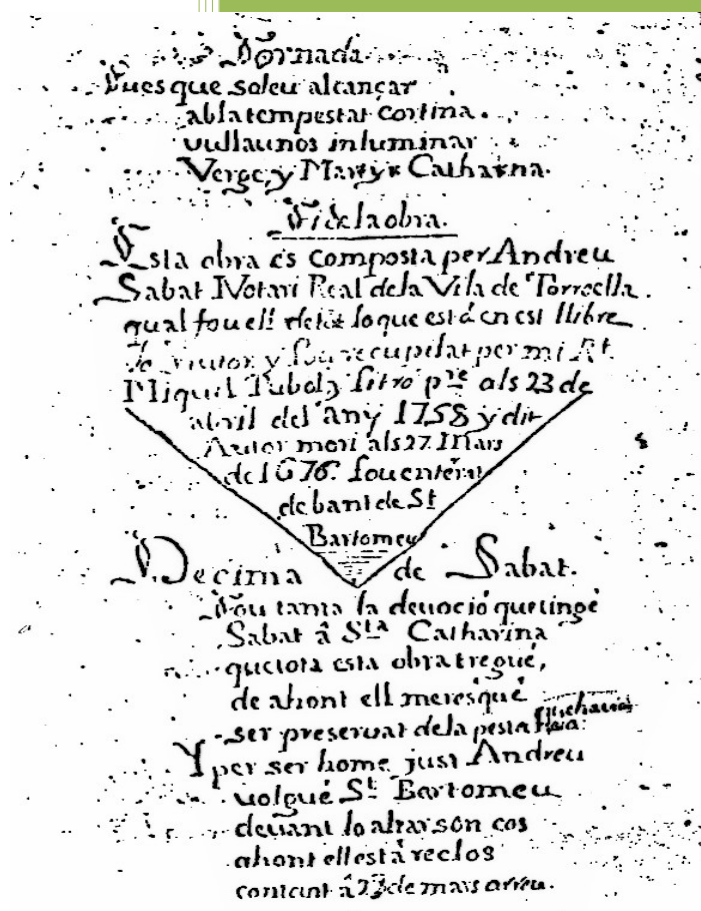 Tornada.
Pues que soleu alcançar
ab la tempestat cortina.
vullaunos inluminar
Verge, y Martyr Catharina.
Fi de la obra.
Esta obra es composta per Andreu
Sabat Notari Real de la Vila de Torroella.
qual fou ell de tot lo que està en est llibre
lo Autor, y fou recupilat per mi Rt.
Miquel Pubol, y Sitro pre. als 23 de
abril del any 1758 y dit
Autor mori als 27. Mars
de 1676. fou enterat
debant de St
Bartomeu
Decima de Sabat.
Fou tanta la devoció que tingé
Sabat â Sta Catharina
que tota esta obra tregué,
de ahont ell meresqué
ser preservat de la pesta
Y per ser home just Andreu
volgué St. Bartomeu
devant lo altar són cos
ahont ell està reclos
contant â 27 de mars arreu.